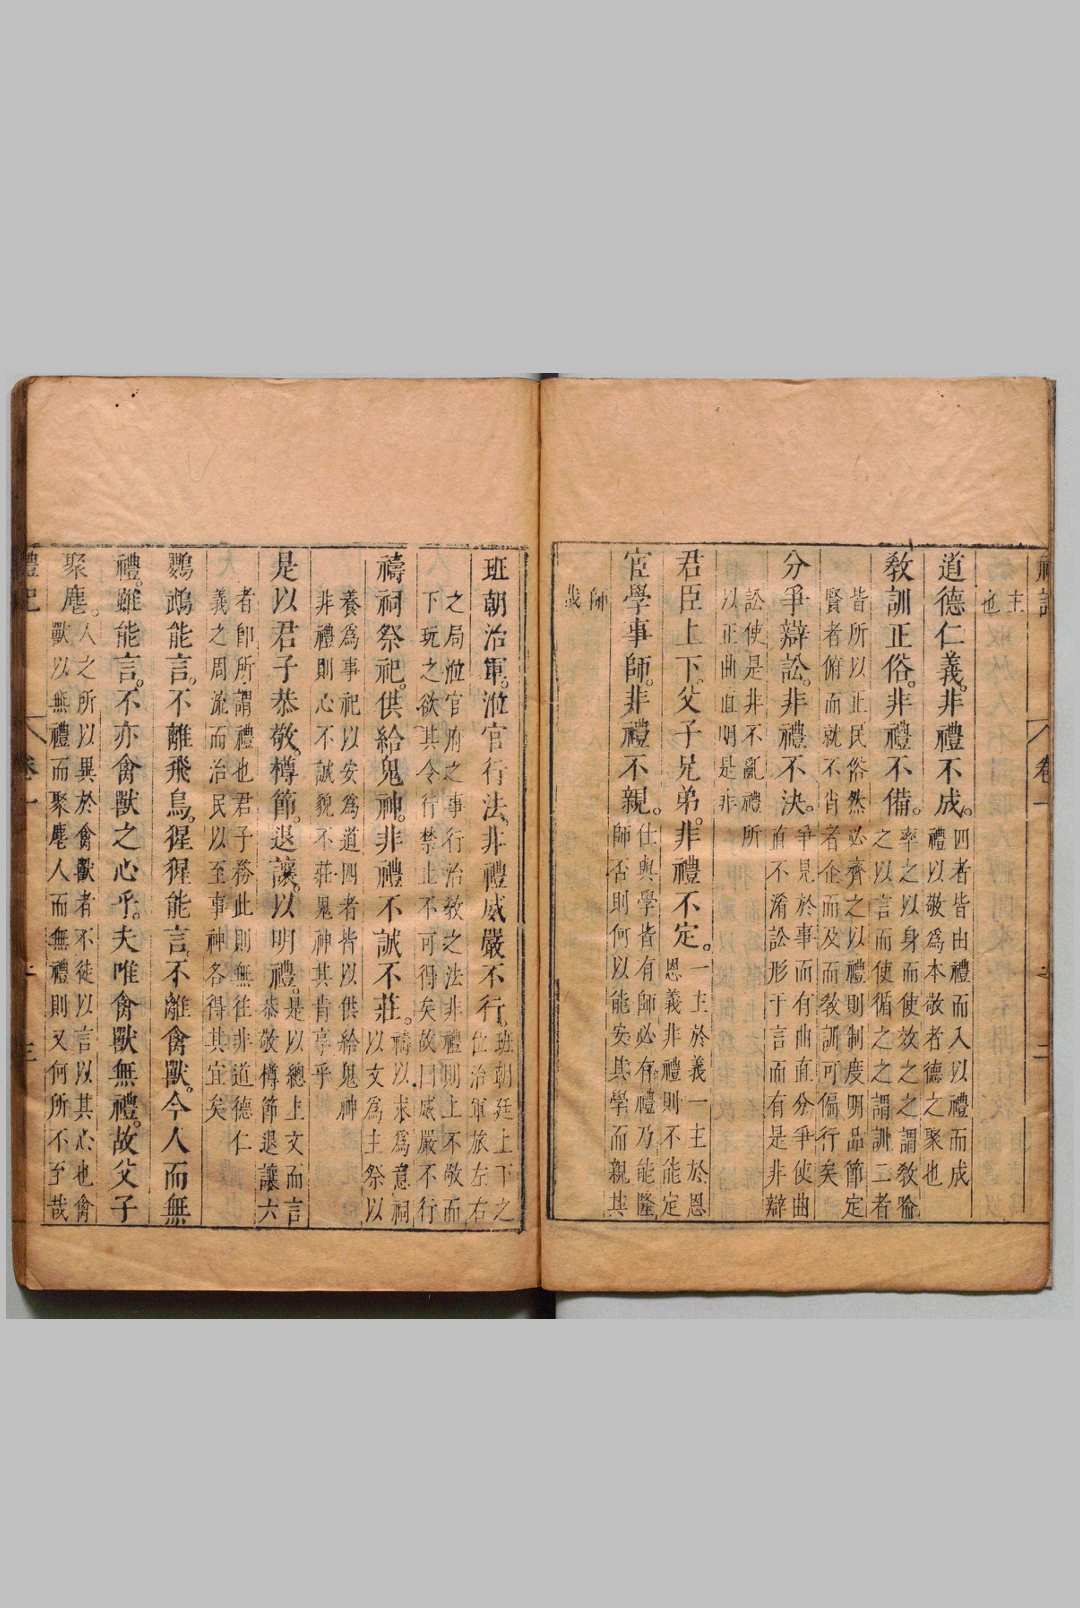 禮記
卷一
主
也
道德仁義。非禮不成。四者皆由禮而入以禮而成
禮以敬爲本敬者德之聚也
教訓正俗。非禮不備。率之以身而使效之之謂教諭
之以言而使循之之謂訓三者
皆所以正民俗然必齊之以禮則制度明品節定
賢者俯而就不肖者企而及而教訓可偏行矣
分爭辯訟。非禮不決。爭見於事而有曲直分爭使曲
直不淆訟形于言而有是非辯
訟使是非不亂禮所
以正曲直明是非
君臣上下。父子兄弟。非禮不定。一主於義一主於恩
恩義非禮則不能定
宦學事師。非禮不親。仕與學皆有師必有禮乃能隆
師否則何以能安其學而親其
師
哉
班朝治軍。涖官行法。非禮威嚴不行。班朝廷上下之
位治軍旅左右
之局涖官府之事行治教之法非禮則上不敬而
下玩之欲其令行禁止不可得矣故曰威嚴不行
禱祠祭祀。供給鬼神。非禮不誠不莊。禱以求爲意祠
以文爲主祭以
養爲事祀以安爲道四者皆以供給鬼神
非禮則心不誠貌不莊鬼神其肯享乎
是以君子恭敬。樽節。退讓。以明禮。是以總上文而言
恭敬樽節退讓六
者即所謂禮也君子務此則無往非道德仁
義之周流而治民以至事神各得其宜矣
鸚鵡能言。不離飛鳥。猩猩能言。不離禽獸。今人而無
禮。雖能言。不亦禽獸之心乎。夫唯禽獸無禮。故父子
聚麀。人之所以異於禽獸者不徒以言以其心也禽
獸以無禮而聚麀人而無禮則又何所不至哉
禮記
卷一
三